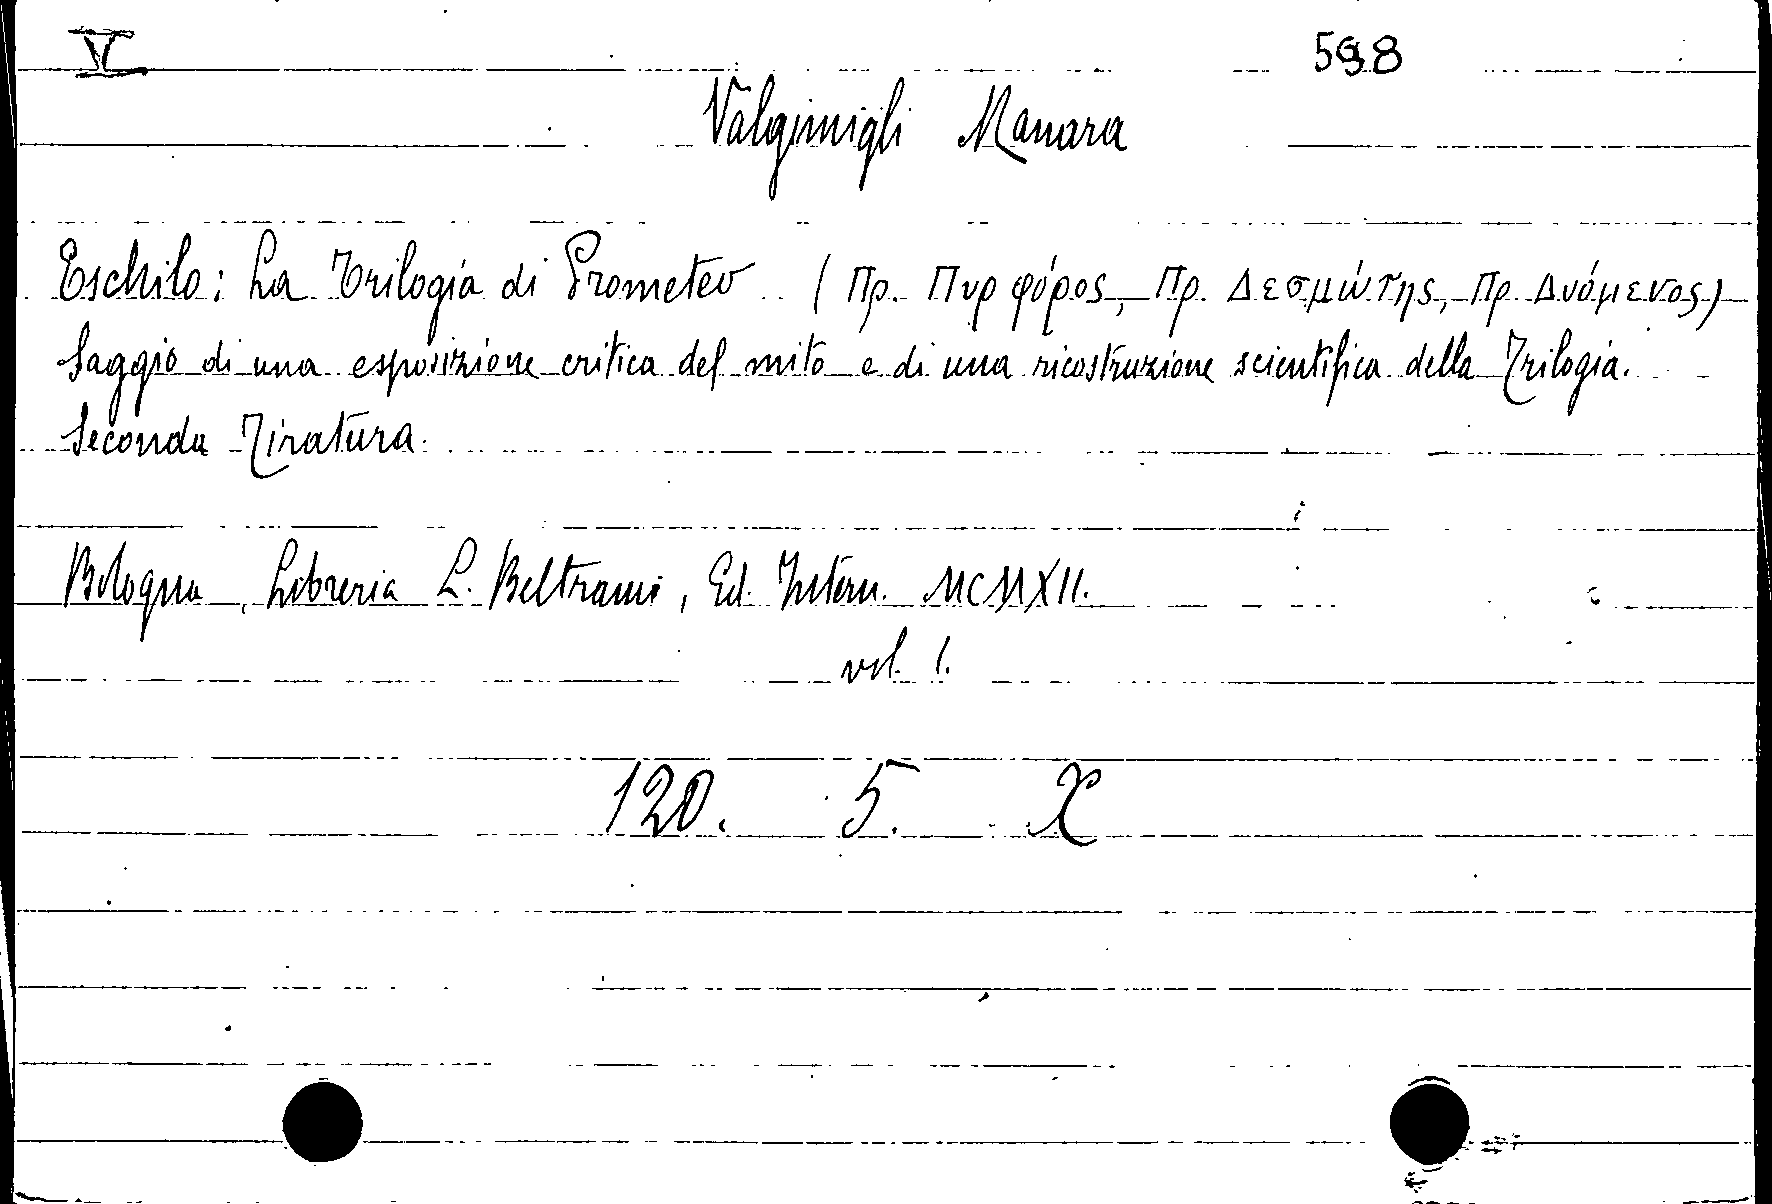 V 598
Valgimigli Manara
Eschilo: La Trilogia di Prometeo (Πρ. Πυρφόρος, Πρ. Δεσμώτης, Πρ. Δυόμενος)
Saggio di una esposizione critica del mito e di una ricostruzione scientifica della Trilogia.
Seconda Tiratura.
Bologna, Libreria L. Beltrami, Ed. Intern. MCMXII.
vol. 1.
120. 5. X